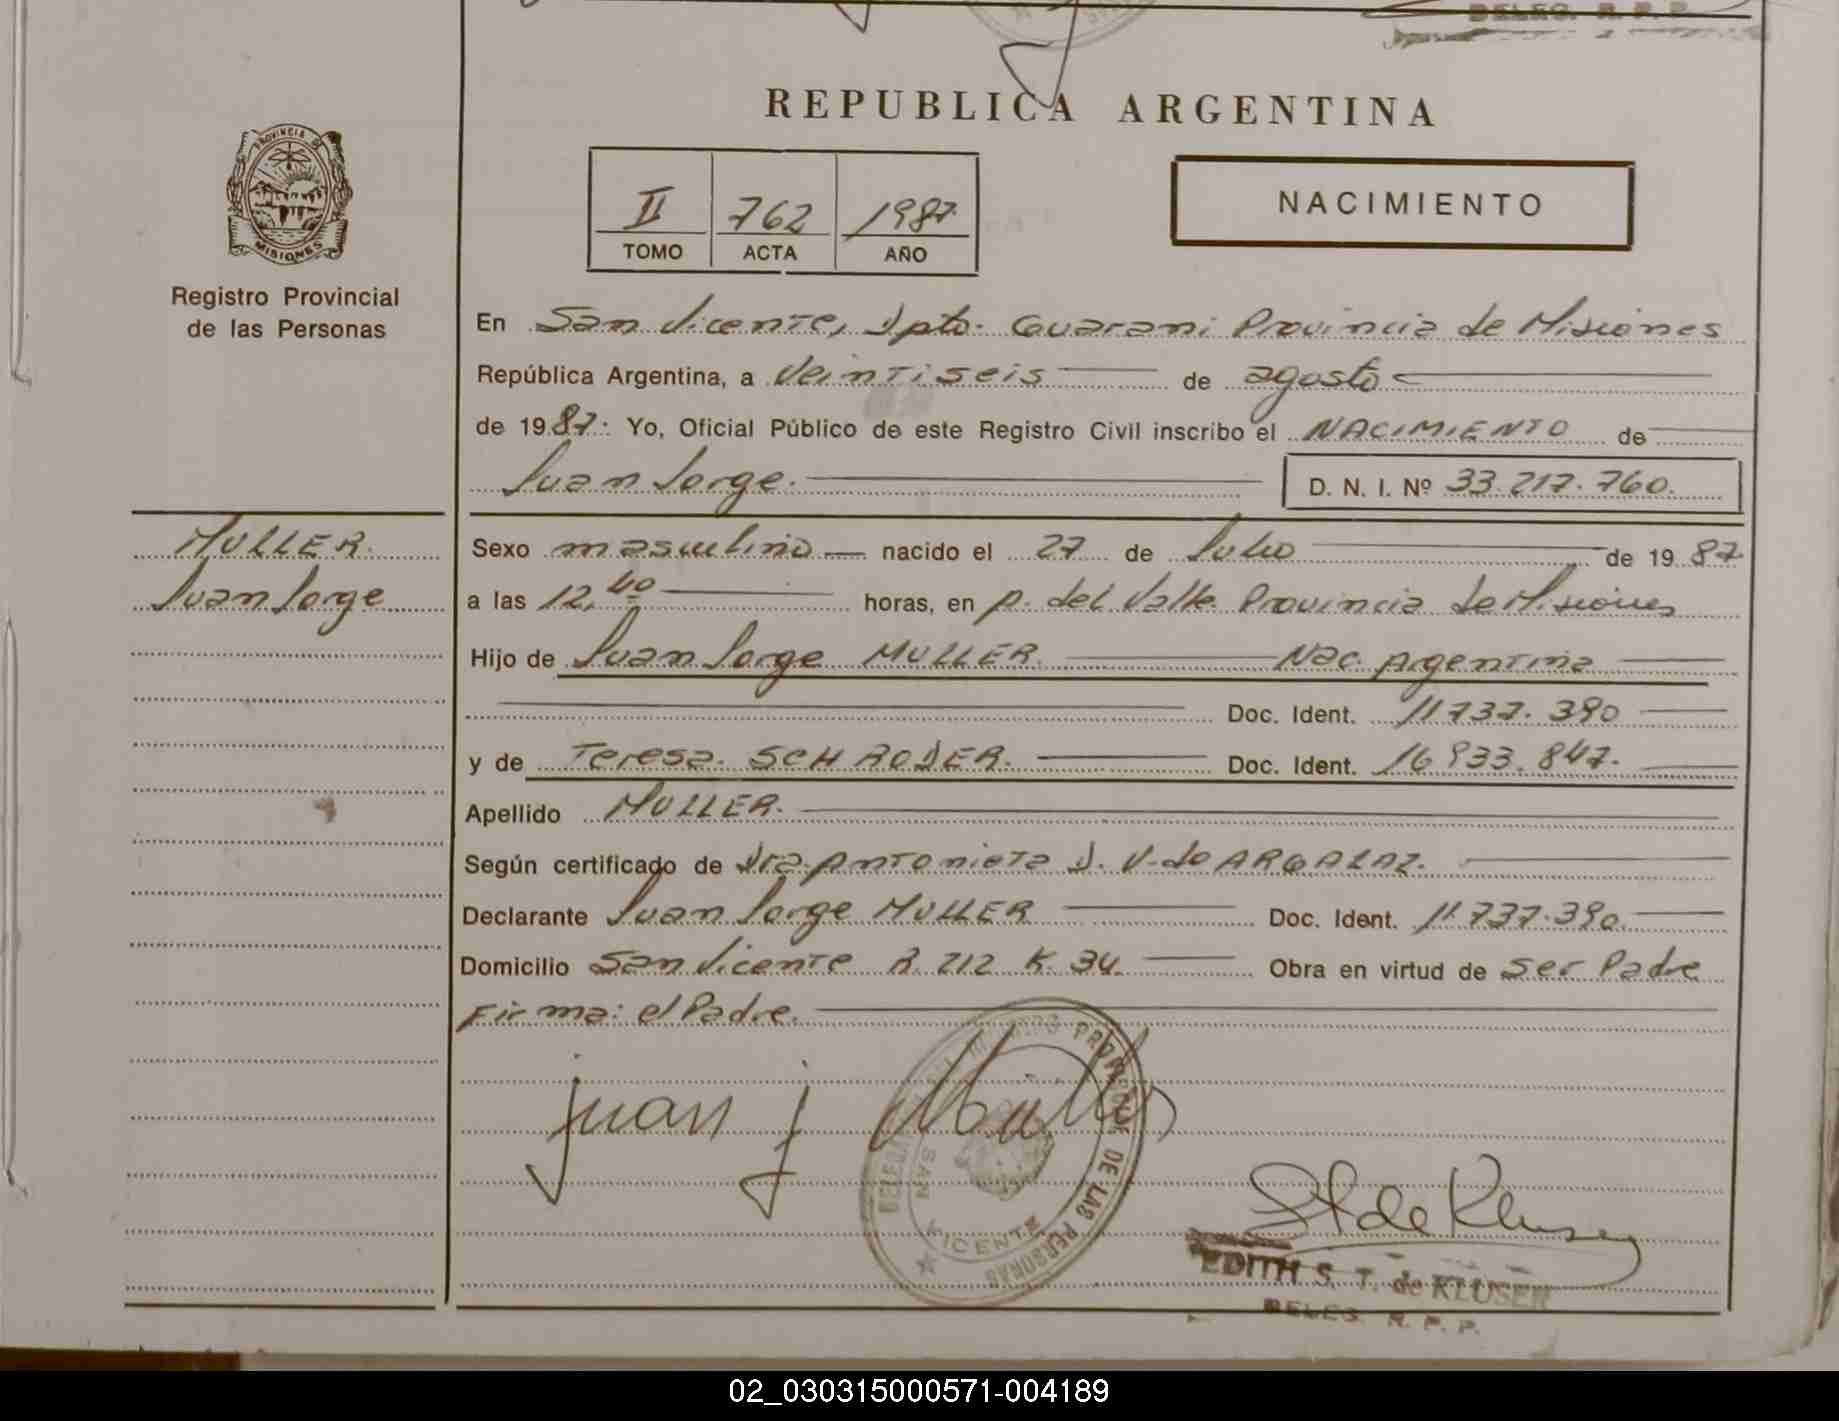 DELEG. R. P. P.
REPUBLICA ARGENTINA
PROVINCIA DE
MISIONES
II 762 1987
TOMO ACTA AÑO
NACIMIENTO
Registro Provincial
de las Personas
En San Vicente, Dpto. Guarani Provincia de Misiones
República Argentina, a Veintiseis de agosto
de 1987. Yo, Oficial Público de este Registro Civil inscribo el NACIMIENTO de
Juan Jorge. D. N. I. Nº 33.217.760.
MULLER.
Juan Jorge
Sexo masculino nacido el 27 de Julio de 1987
a las 12,40 horas, en p. del Valle Provincia de Misiones
Hijo de Juan Jorge MULLER. Nac. Argentina
Doc. Ident. 11.737.390
y de Teresa. SCHRODER. Doc. Ident. 16.933.847.
Apellido MULLER.
Según certificado de Dra. Antonieta D. V. de ARGALAZ.
Declarante Juan Jorge MULLER Doc. Ident. 11.737.390.
Domicilio San Vicente R. 212 K. 34. Obra en virtud de ser Padre
Firma: el Padre.
juan j Muller
PROVINCIAL DE LAS PERSONAS
SAN VICENTE
St de Kluser
EDITH S. T. de KLUSER
DELEG. R. P. P.
02_030315000571-004189